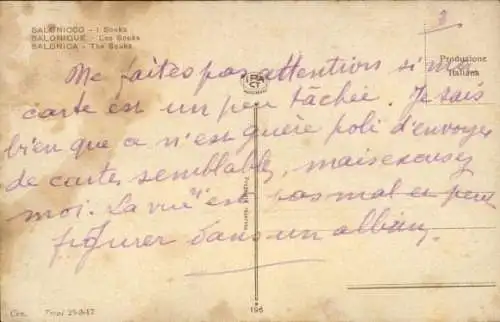 SALONICCO - I Souks
SALONIQUE - Les Souks
SALONICA - The Souks
Produzione
Italiana
Ne faites pas attention si ma
carte est un peu tâchée. Je sais
bien que ce n'est guère poli d'envoyer
de cartes semblables, mais excusez
moi. La vue est pas mal et peut
figurer dans un album.
Cen. Trypi 25-9-17
196